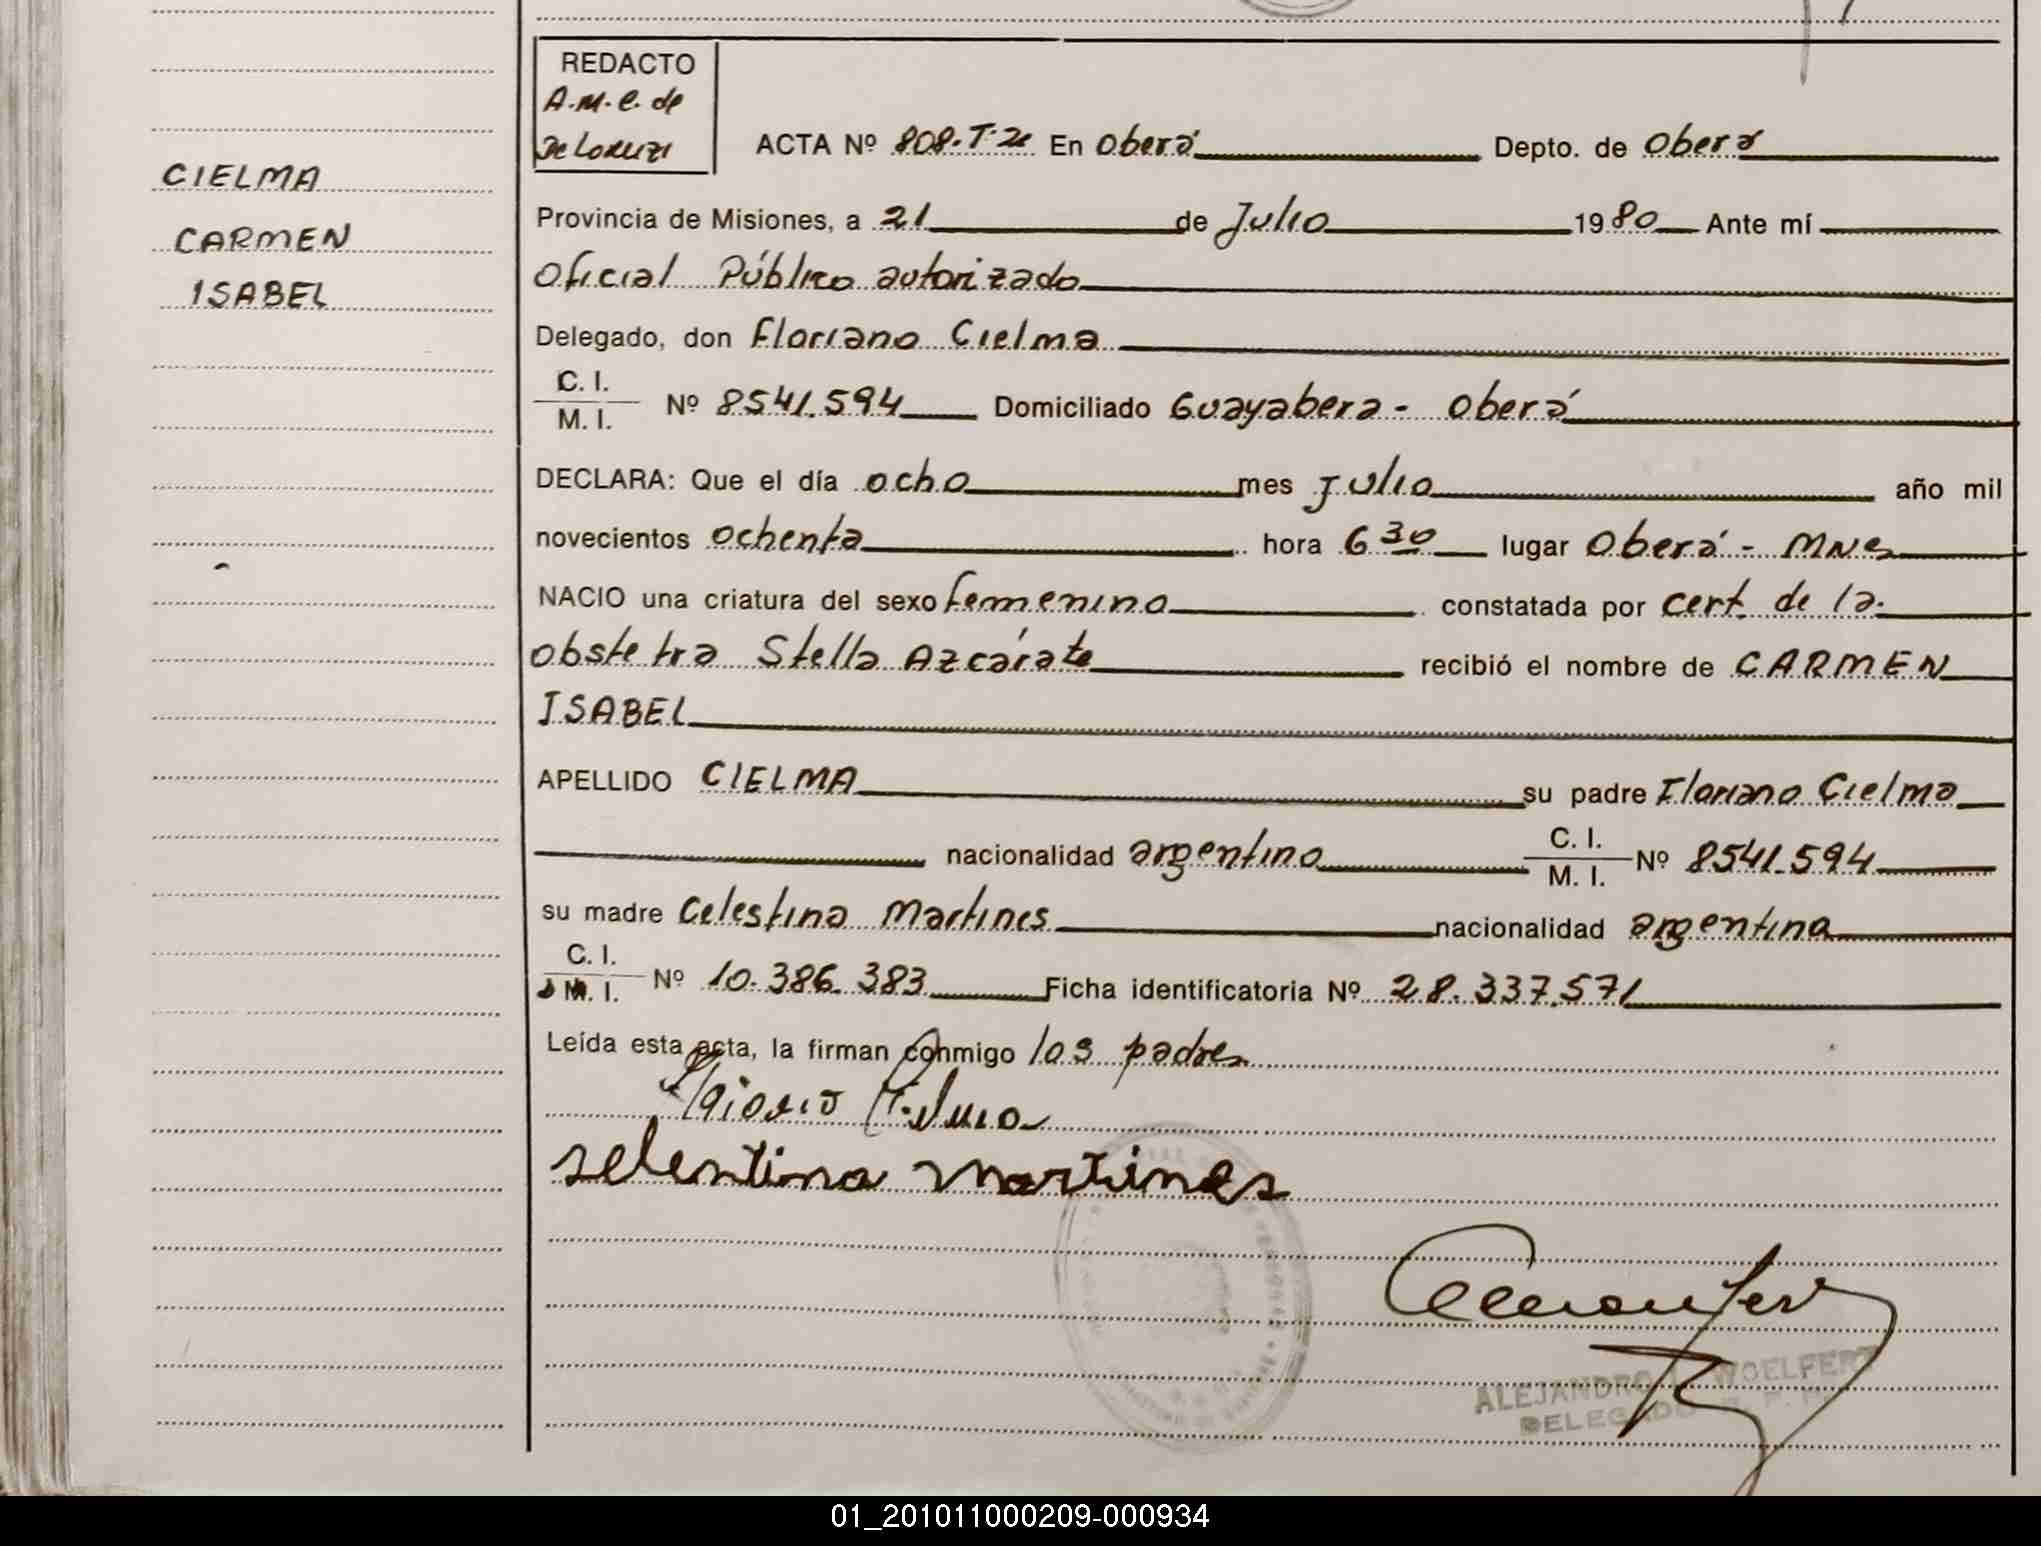 REDACTO
A.M.C. de
De Lorenzi
ACTA Nº 808-T-2º En Oberá Depto. de Oberá
CIELMA
CARMEN
ISABEL
Provincia de Misiones, a 21 de Julio 1980 Ante mí
Oficial Público autorizado
Delegado, don Floriano Cielma
C. I.
M. I. Nº 8541.594 Domiciliado Guayabera - Oberá
DECLARA: Que el día ocho mes Julio año mil
novecientos ochenta hora 6 30 lugar Oberá - MNES
NACIO una criatura del sexo femenino constatada por cert. de la
obstetra Stella Azcárate recibió el nombre de CARMEN
ISABEL
APELLIDO CIELMA su padre Floriano Cielma
nacionalidad argentino C. I. M. I. Nº 8541.594
su madre Celestina Martines nacionalidad argentina
C. I.
M. I. Nº 10.386.383 Ficha identificatoria Nº 28.337.571
Leída esta acta, la firman conmigo los padres
selentina martines
ALEJANDRO WOELFERT
DELEGADO R. P. P.
01_201011000209-000934